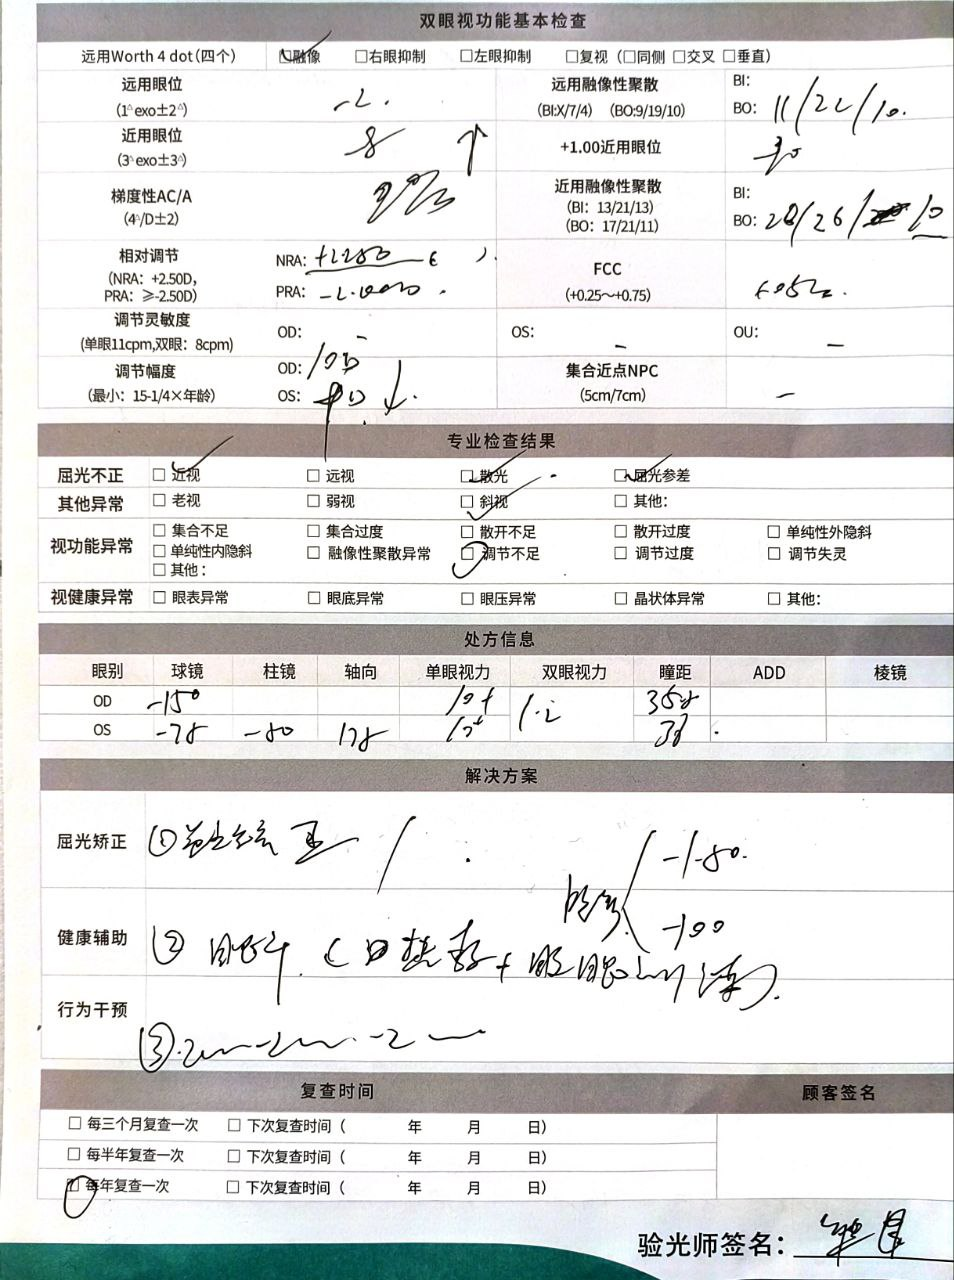 双眼视功能基本检查
远用Worth 4 dot(四个) □融像 □右眼抑制 □左眼抑制 □复视（□同侧 □交叉 □垂直）
远用眼位 (1△exo±2△) -2. 远用融像性聚散 (BI:X/7/4) (BO:9/19/10) BI: BO: 11/22/10.
近用眼位 (3△exo±3△) -8 ↑ +1.00近用眼位
梯度性AC/A (4△/D±2) 近用融像性聚散 (BI: 13/21/13) (BO: 17/21/11) BI: BO: 28/26/10
相对调节 (NRA: +2.50D, PRA: ≥-2.50D) NRA: PRA: FCC (+0.25～+0.75)
调节灵敏度 (单眼11cpm,双眼: 8cpm) OD: - OS: - OU: -
调节幅度 (最小: 15-1/4×年龄) OD: OS: ↓ 集合近点NPC (5cm/7cm) -
专业检查结果
屈光不正 □ 近视 □ 远视 □ 散光 □ 屈光参差
其他异常 □ 老视 □ 弱视 □ 斜视 □ 其他:
视功能异常 □ 集合不足 □ 集合过度 □ 散开不足 □ 散开过度 □ 单纯性外隐斜
□ 单纯性内隐斜 □ 融像性聚散异常 □ 调节不足 □ 调节过度 □ 调节失灵
□ 其他：
视健康异常 □ 眼表异常 □ 眼底异常 □ 眼压异常 □ 晶状体异常 □ 其他:
处方信息
眼别 球镜 柱镜 轴向 单眼视力 双眼视力 瞳距 ADD 棱镜
OD -150 10+ 1.2
OS -75 -50 175 10+
解决方案
屈光矫正 ①
-150.
-100
健康辅助 ②
行为干预
③
复查时间 顾客签名
□ 每三个月复查一次 □ 下次复查时间（ 年 月 日）
□ 每半年复查一次 □ 下次复查时间（ 年 月 日）
□ 每年复查一次 □ 下次复查时间（ 年 月 日）
验光师签名: